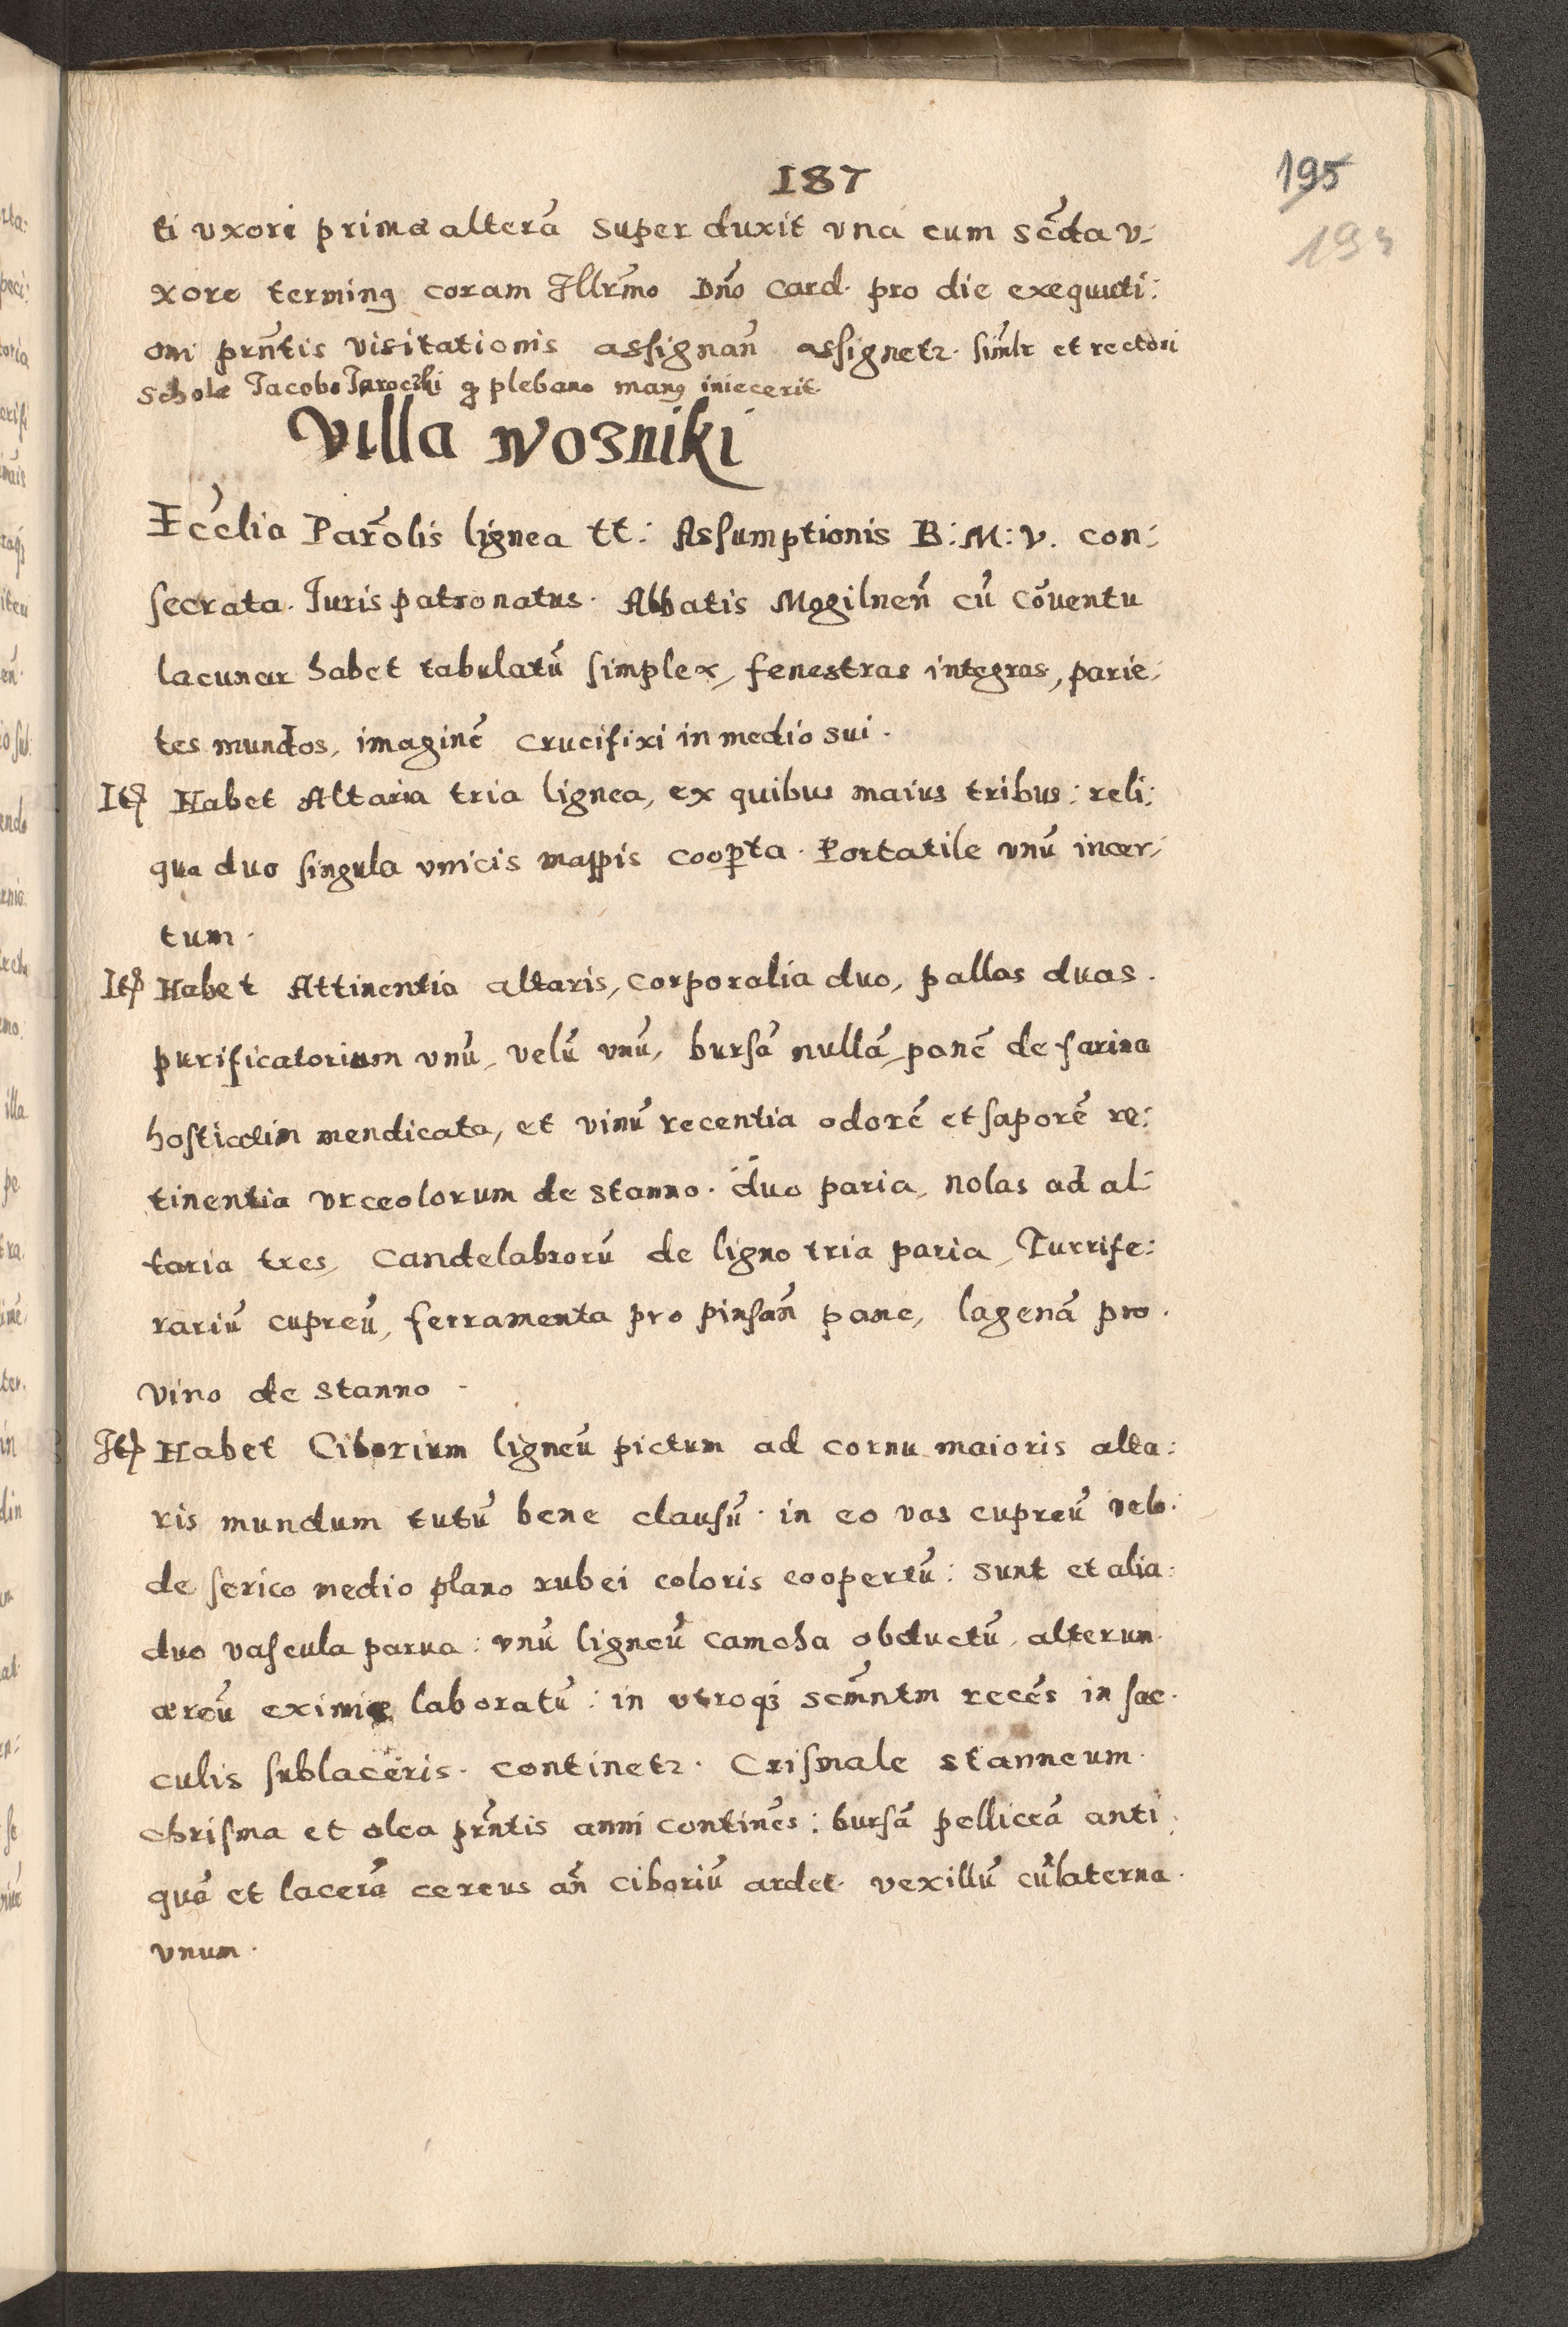 187
195
193
ti vxori prima alterā super duxit vna cum scd̄a v:
xore terminꝰ coram Illr̄mo Dn̄o Card. pro die exequuti:
oni prn̄tis visitationis assignan̄ assignetr. simlr̄ et rectori
scholæ Jacobo Jaroczki q plebano manꝰ iniecerit
Villa Wosniki
Ecc̄lia Par̄olis lignea tt: Assumptionis B: M: V. con:
secrata. Juris patronatus. Abbatis Mogilnen̄ cū cōuentu
lacunar habet tabulatū simplex, fenestras integras, parie:
tes mundos, imaginē crucifixi in medio sui.
Itē Habet Altaria tria lignea, ex quibus maius tribus: reli:
qua duo singula vnicis mappis coop̄ta. Portatile vnū incer:
tum.
Itē Habet Attinentia altaris, corporalia duo, pallas duas.
purificatorium vnū, velū vnū, bursā nullā, panē de farina
hosticalim mendicata, et vinū recentia odorē et saporē re:
tinentia vrceolorum de stanno. duo paria, nolas ad al:
taria tres, candelabrorū de ligno tria paria, Turrife:
rariū cupreū, ferramenta pro pinsan̄ pane, lagenā pro.
vino de stanno.
Itē Habet Ciborium ligneū pictum ad cornu maioris alta:
ris mundum tutū bene clausū. in eo vas cupreū velo.
de serico medio plano rubei coloris coopertū: sunt et alia:
duo vascula parua: vnū ligneū camcha obductū, alterum.
æreū eximie laboratū: in vtroqȝ scm̄ntm recēs in sac.
culis sublaceris. continetr. Crismale stanneum.
chrisma et olea prn̄tis anni continēs: bursā pelliceā anti:
quā et lacerā cereus an̄ ciboriū ardet. vexillū cū laterna.
vnum.